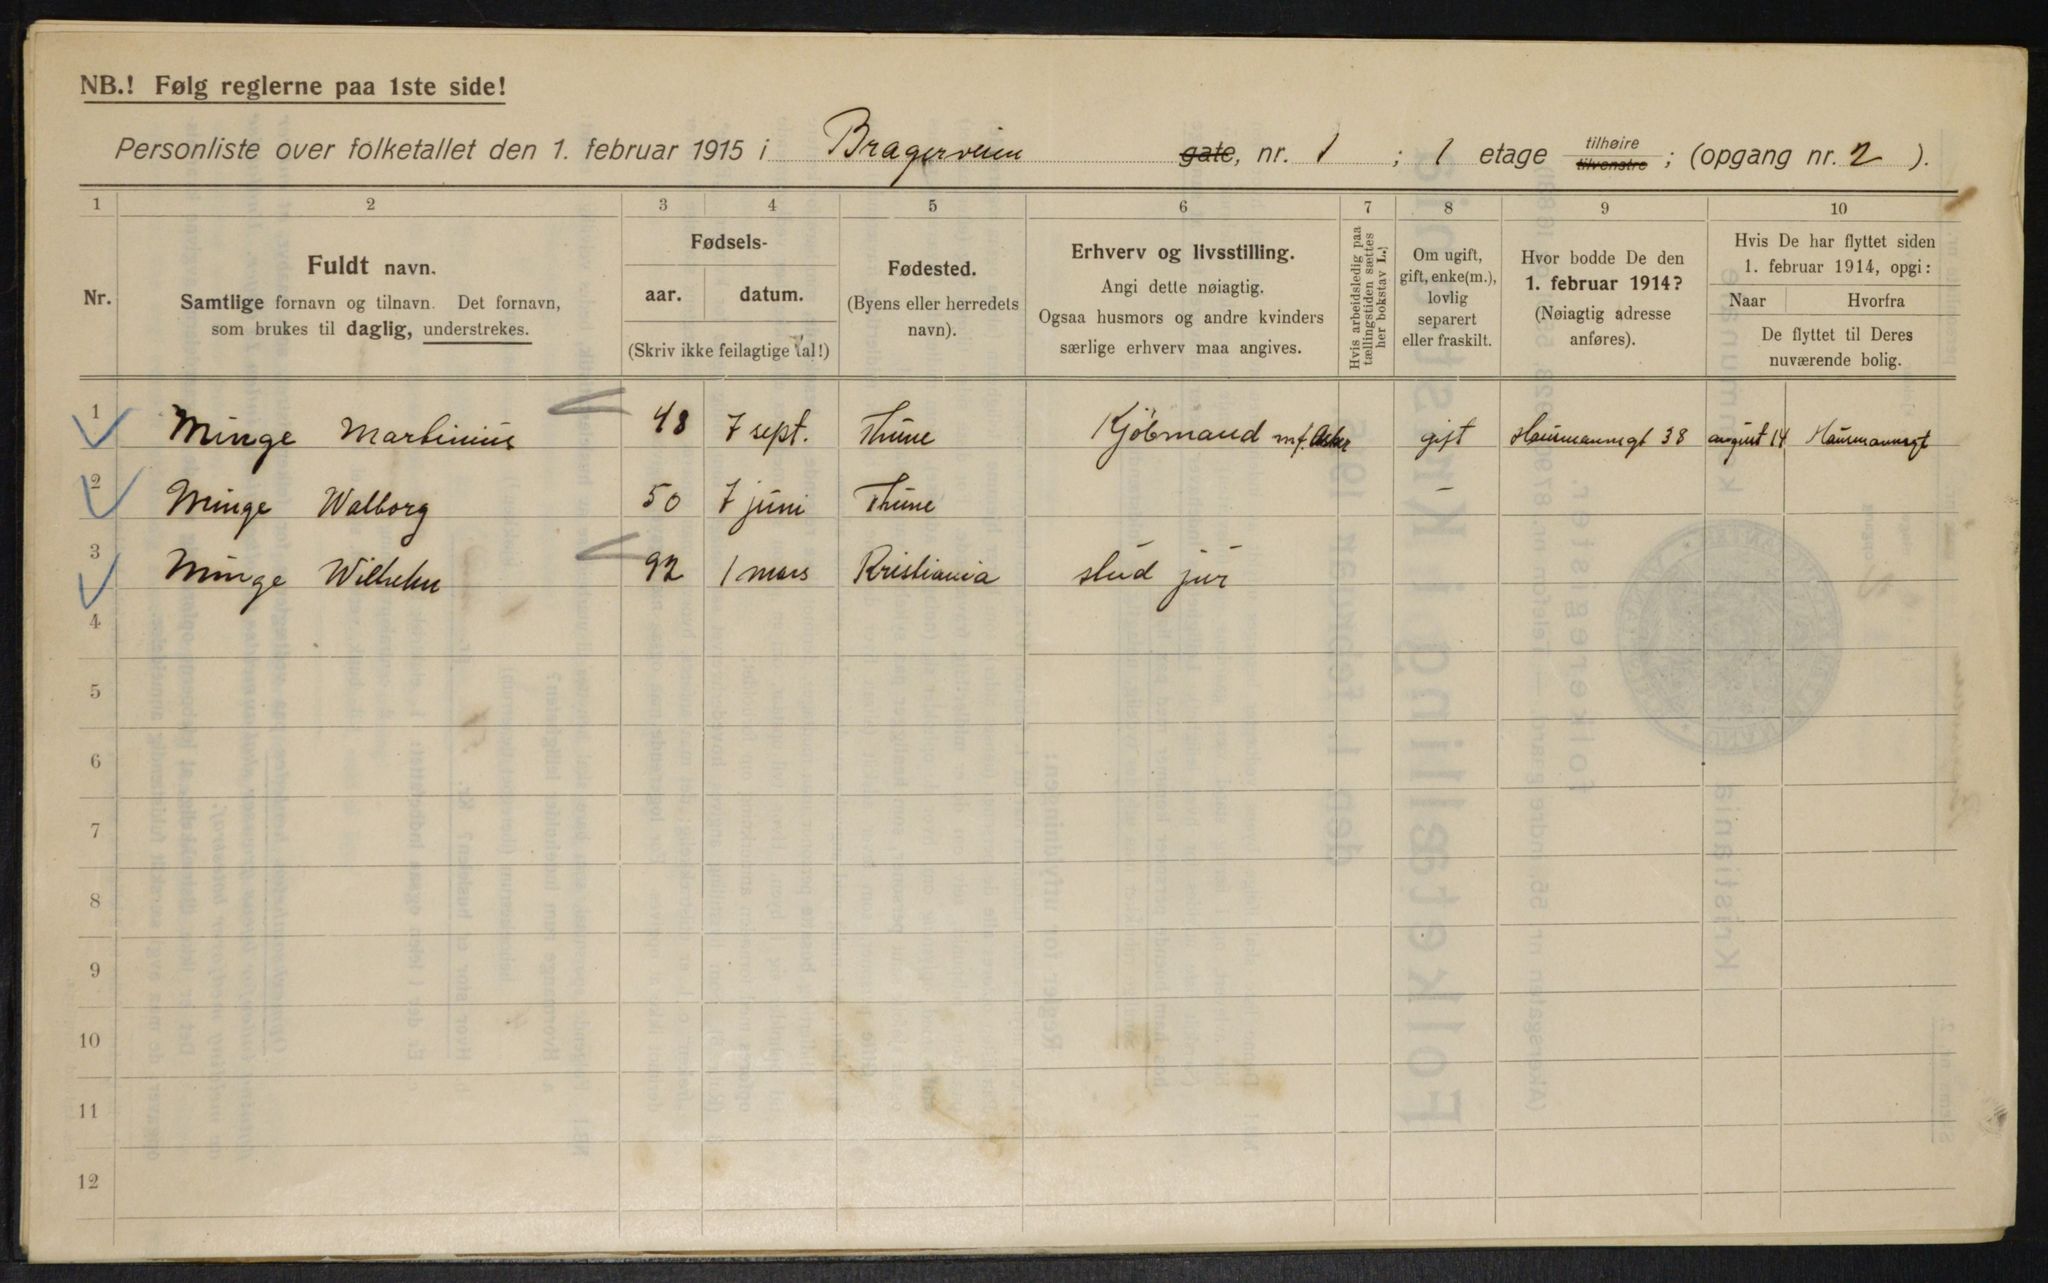 NB.! Følg reglerne paa 1ste side!
Personliste over folketallet den 1. februar 1915 i Bragerveien gate, nr. 1 ; 1 etage tilhøire tilvenstre; (opgang nr. 2 ).
1 2 3 4 5 6 7 8 9 10
Nr.
Fuldt navn.
Samtlige fornavn og tilnavn. Det fornavn,
som brukes til daglig, understrekes.
Fødsels-
aar. datum.
(Skriv ikke feilagtige tal!)
Fødested.
(Byens eller herredets
navn).
Erhverv og livsstilling.
Angi dette nøiagtig.
Ogsaa husmors og andre kvinders
særlige erhverv maa angives.
Hvis arbeidsledig paa
tællingstiden sættes
her bokstav L.!
Om ugift,
gift, enke(m.),
lovlig
separert
eller fraskilt.
Hvor bodde De den
1. februar 1914?
(Nøiagtig adresse
anføres).
Hvis De har flyttet siden
1. februar 1914, opgi:
Naar Hvorfra
De flyttet til Deres
nuværende bolig.
1 Minge Martinius 48 7 sept. Thune Kjöbmand gift Hausmannsgt 38 august 14 Hausmannsgt
2 Minge Walborg 50 7 juni Thune –
3 Minge Wilhelm 92 1 mars Kristiania stud jur
4
5
6
7
8
9
10
11
12